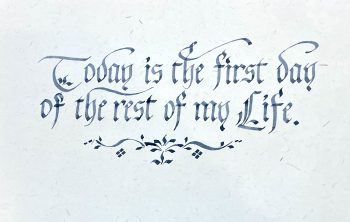 Today is the first day
of the rest of my Life.